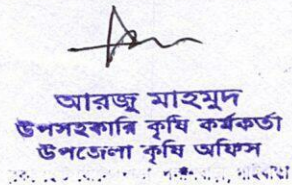 আরজু মাহমুদ
উপসহকারি কৃষি কর্মকর্তা
উপজেলা কৃষি অফিস